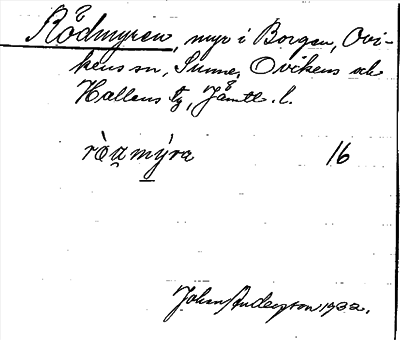 Rödmyren, myr i Borgen, Ovi-
kens sn, Sunne, Ovikens och
Hallens tg, Jämtl. l.
ròa̮mýra 16
Johan Anderzson 1932.